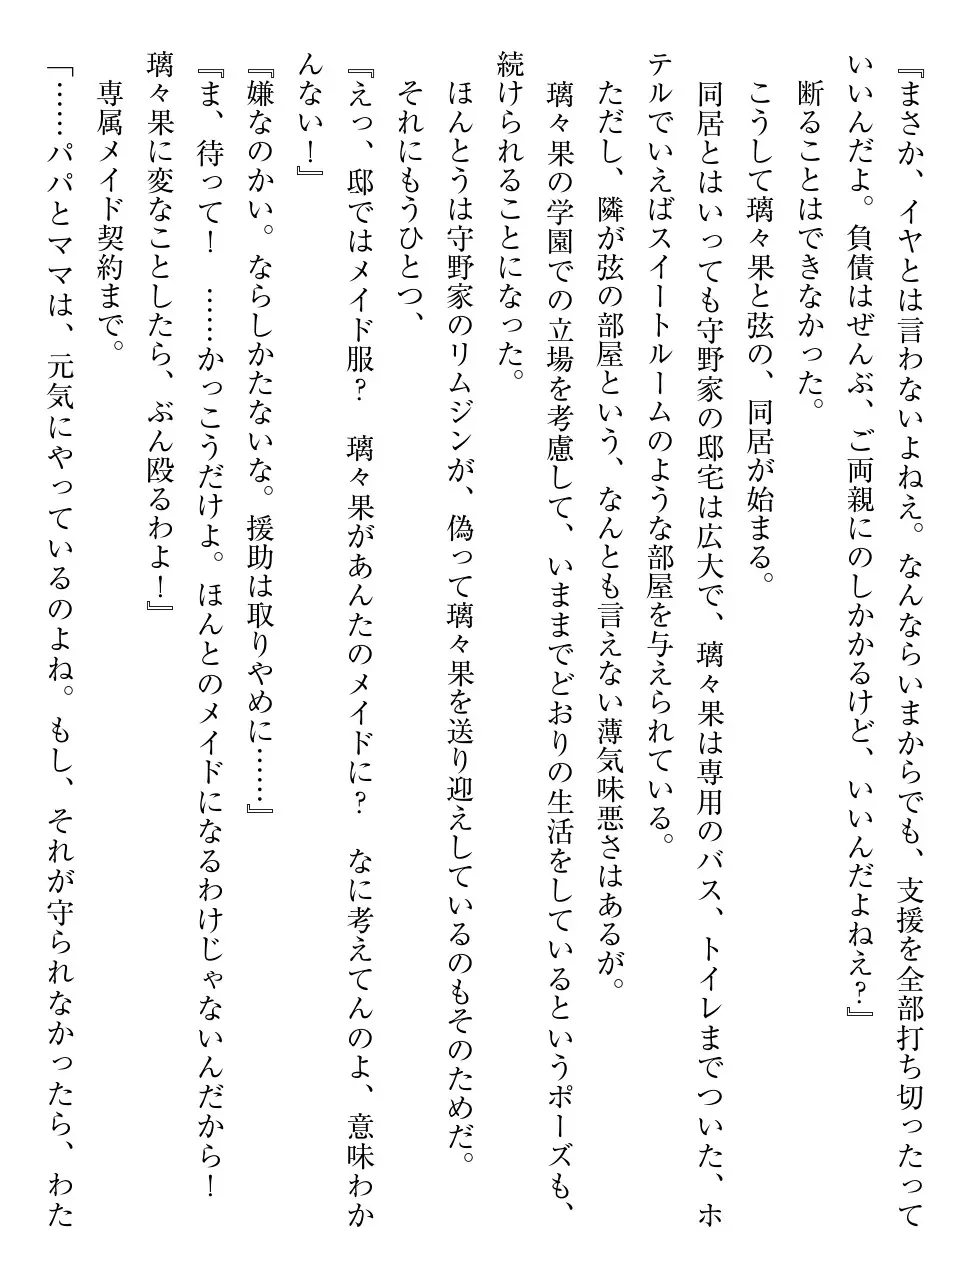 『まさか、イヤとは言わないよねえ。なんならいまからでも、支援を全部打ち切ったって
いいんだよ。負債はぜんぶ、ご両親にのしかかるけど、いいんだよねえ？』
　断ることはできなかった。
　こうして璃々果と弦の、同居が始まる。
　同居とはいっても守野家の邸宅は広大で、璃々果は専用のバス、トイレまでついた、ホ
テルでいえばスイートルームのような部屋を与えられている。
　ただし、隣が弦の部屋という、なんとも言えない薄気味悪さはあるが。
　璃々果の学園での立場を考慮して、いままでどおりの生活をしているというポーズも、
続けられることになった。
　ほんとうは守野家のリムジンが、偽って璃々果を送り迎えしているのもそのためだ。
　それにもうひとつ、
『えっ、邸ではメイド服？　璃々果があんたのメイドに？　なに考えてんのよ、意味わか
んない！』
『嫌なのかい。ならしかたないな。援助は取りやめに……』
『ま、待って！　……かっこうだけよ。ほんとのメイドになるわけじゃないんだから！
璃々果に変なことしたら、ぶん殴るわよ！』
　専属メイド契約まで。
「……パパとママは、元気にやっているのよね。もし、それが守られなかったら、わた